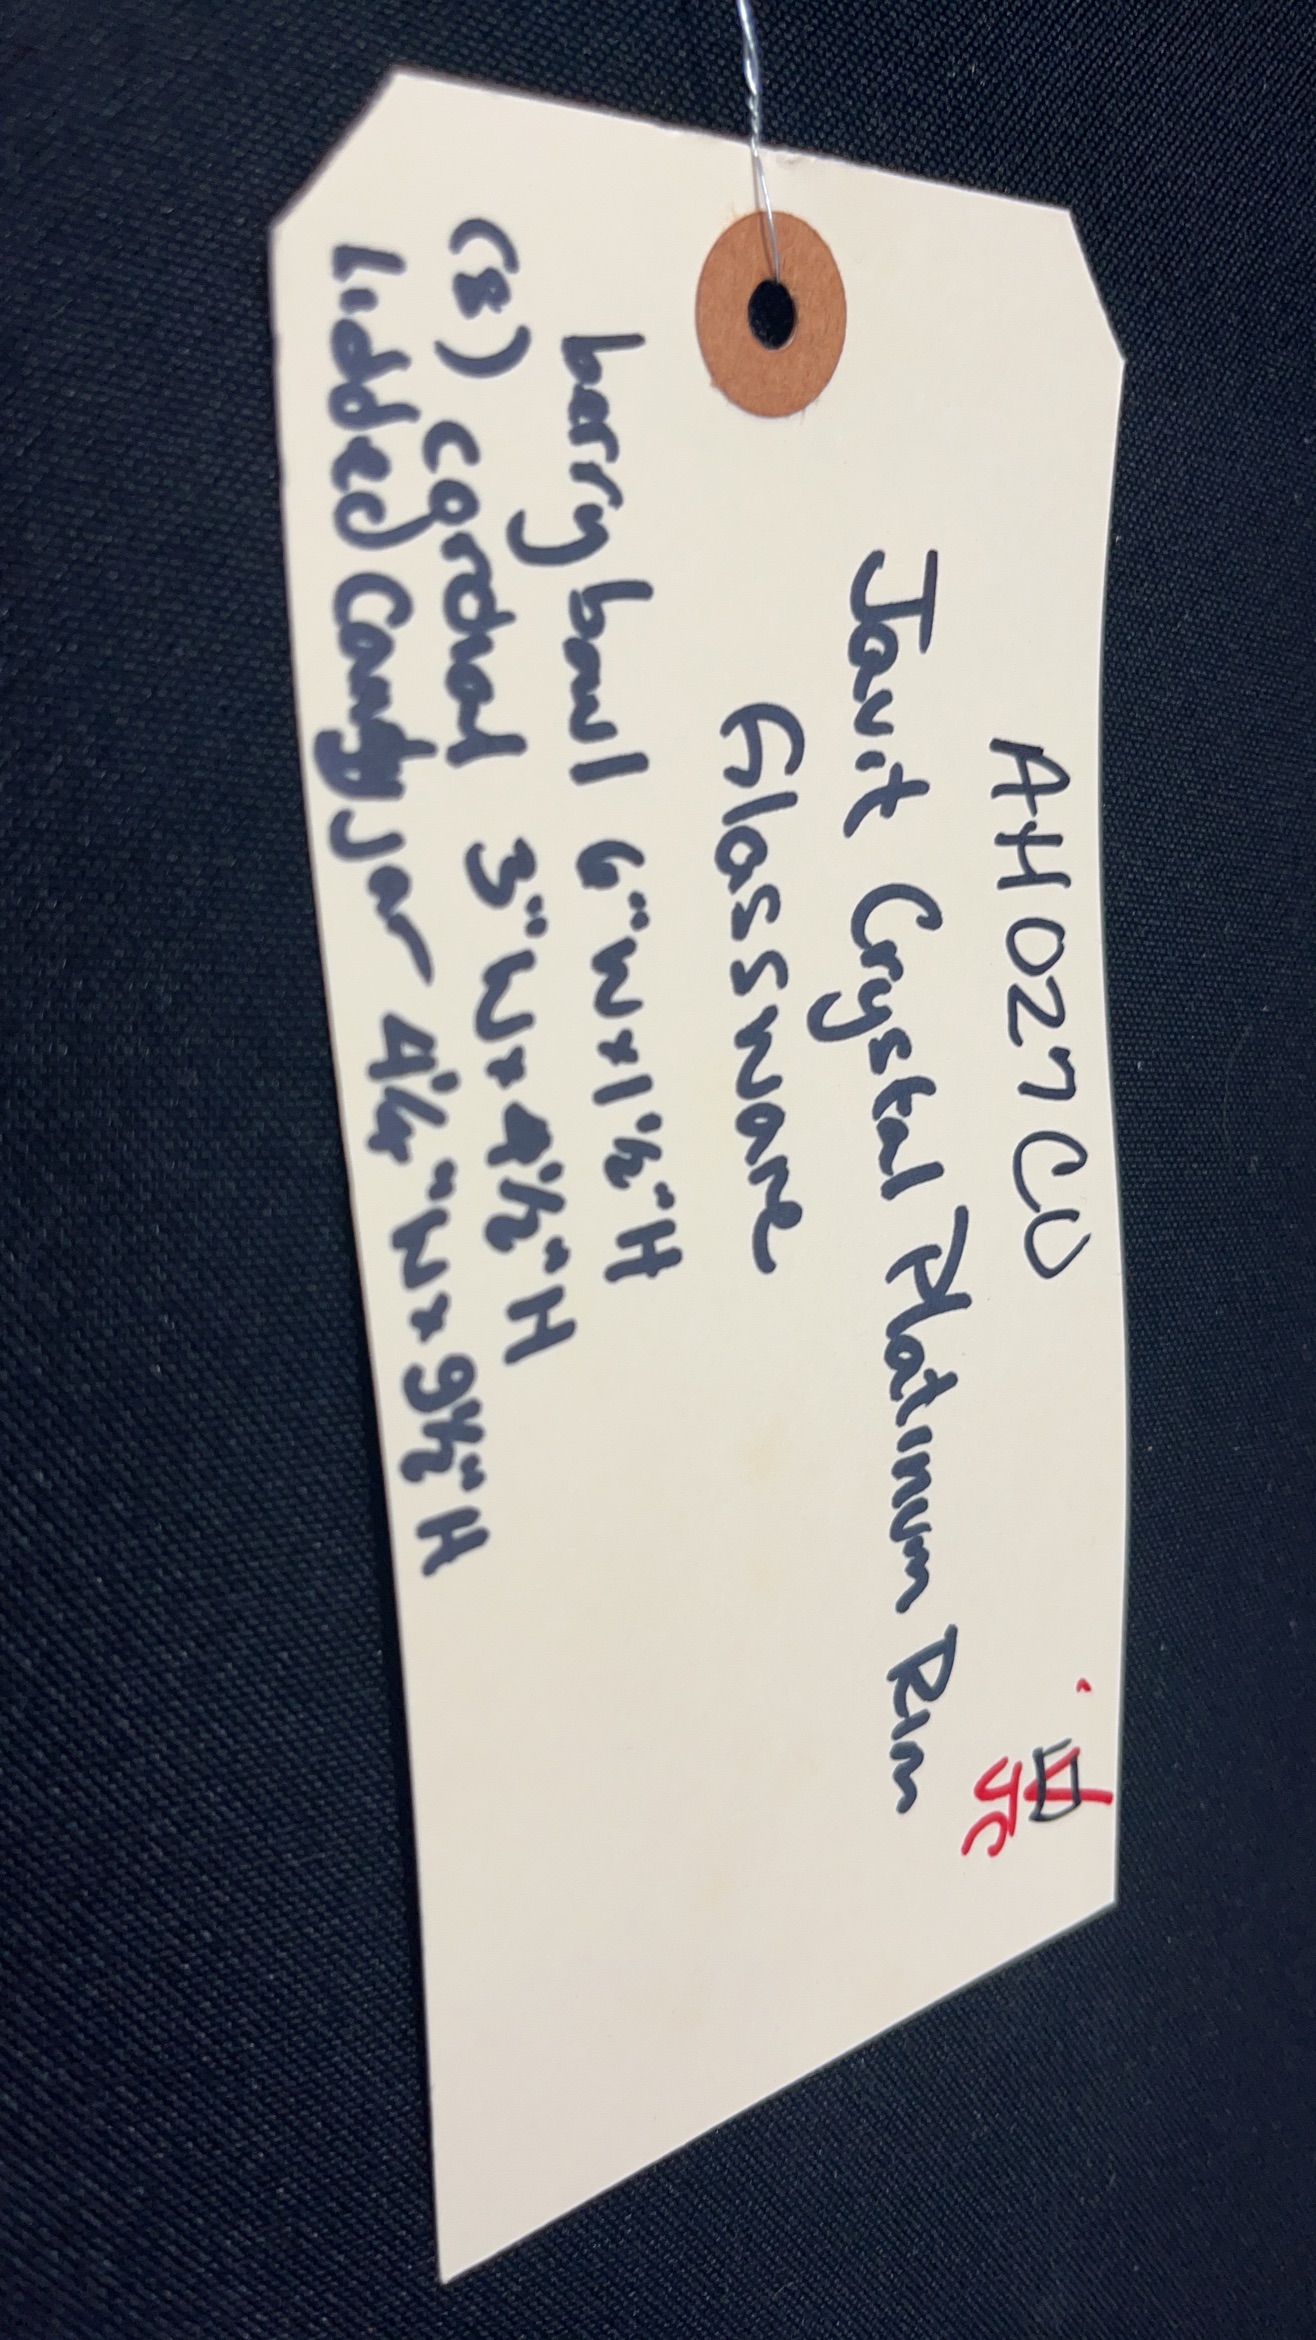 AH027CU
JC
Javit Crystal Platinum Rim
Glassware
berry bowl 6"W x 1½"H
(8) cordial 3"W x 4½"H
Lidded Candy jar 4¼"W x 9½"H